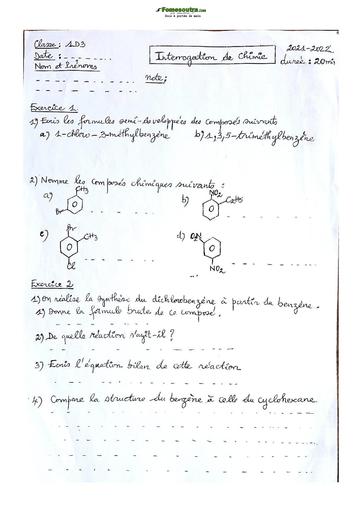 Fomesoutra.com
Docs à portée de main
Classe: 1D3
Date:
Nom et Prénoms
Interrogation de Chimie
2021-2022
durée: 20min
note:
Exercice 1
1) Ecris les formules semi-développées des composés suivants
a) 1-chloro-3-méthylbenzène b) 1,3,5-triméthylbenzène
2) Nomme les composés chimiques suivants :
a) CH3 Br
b) NO2 C2H5
c) Br CH3 Cl
d) O2N NO2
Exercice 2
1) On réalise la synthèse du dichlorobenzène à partir du benzène.
1) Donne la formule brute de ce composé.
2) De quelle réaction s'agit-il ?
3) Ecris l'équation bilan de cette réaction
4) Compare la structure du benzène à celle du cyclohexane